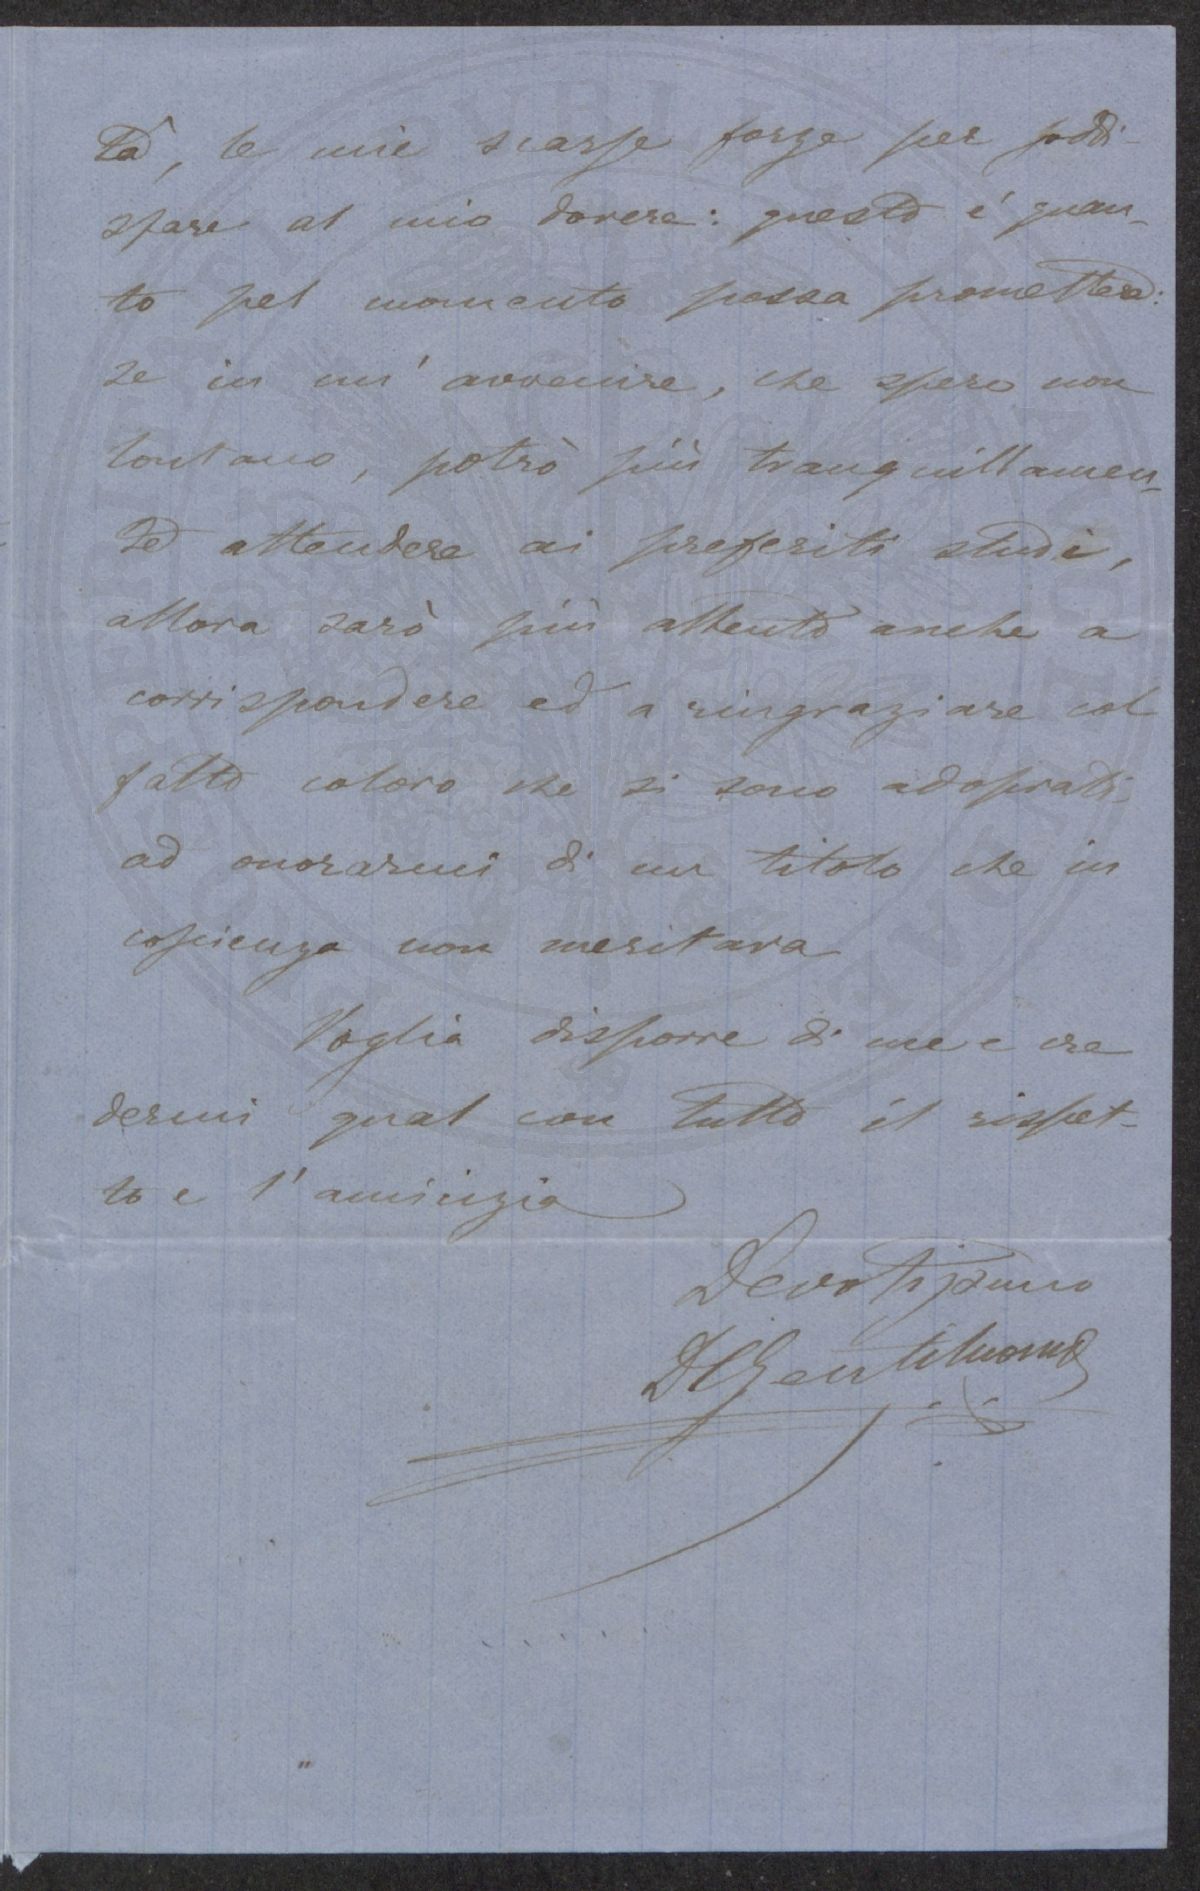 tà, le mie scarse forze per soddi-
sfare al mio dovere: questo é quan-
to pel momento possa promettere:
se in un' avvenire, che spero non
lontano, potrò più tranquillamen-
te attendere ai preferiti studi,
allora sarò più attento anche a
corrispondere ed a ringraziare col
fatto coloro che si sono adoprati
ad onorarmi di un titolo che in
coscienza non meritava
Voglia disporre di me e cre
dermi qual con tutto il rispet-
to e l'amicizia
Devotissimo
DGentiluomo